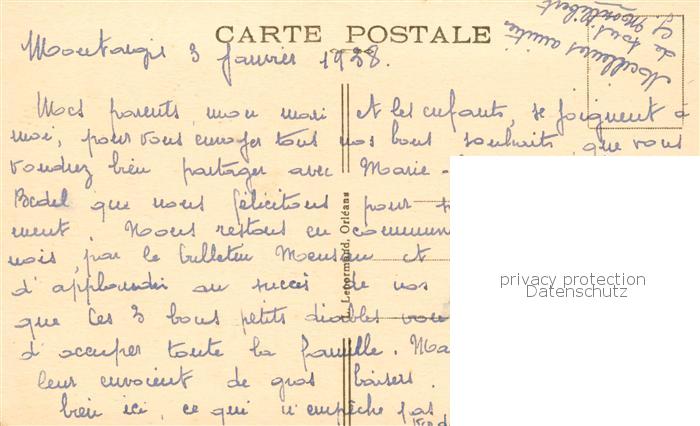 CARTE POSTALE
Meilleures amitiés
de tous
Montargis 3 Janvier 1938.
Mes parents, mon mari et les enfants, se joignent à
moi, pour vous envoyer tous nos bons souhaits, que vous
voudrez bien partager avec Marie-
Bedel que nous félicitons pour
ment. Nous restons en
mois, par le bulletin Mensuel et
d'applaudir au succès de nos
que ces 3 bons petits diables
d'occuper toute la famille. Ma
leur envoient de gros baisers.
bien ici, ce qui n'empêche pas
L. Lenormand, Orléans
privacy protection
Datenschutz